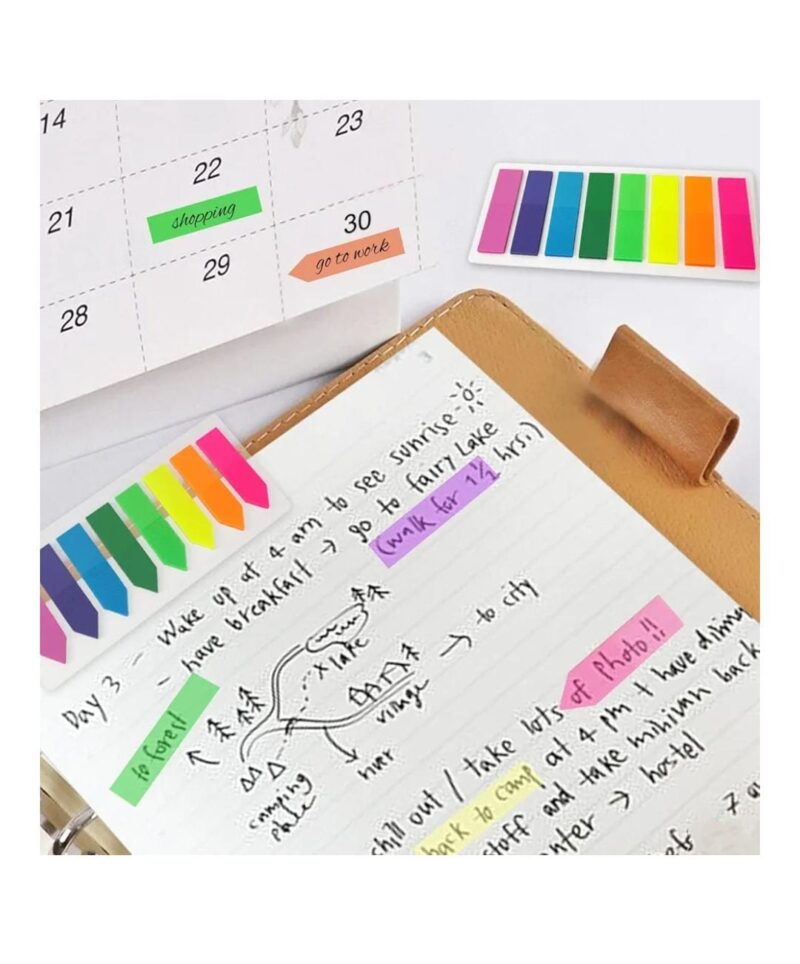 14
22
23
shopping
21
29
30
go to work
28
Day 3 - Wake up at 4 am to see sunrise
- have breakfast → go to fairy Lake
(walk for 1½ hrs.)
to forest
x lake
→ to city
village
river
camping
place
chill out / take lots of photo!!
back to camp at 4 pm + have dinner
stoff and take minivan back
→ hostel
7